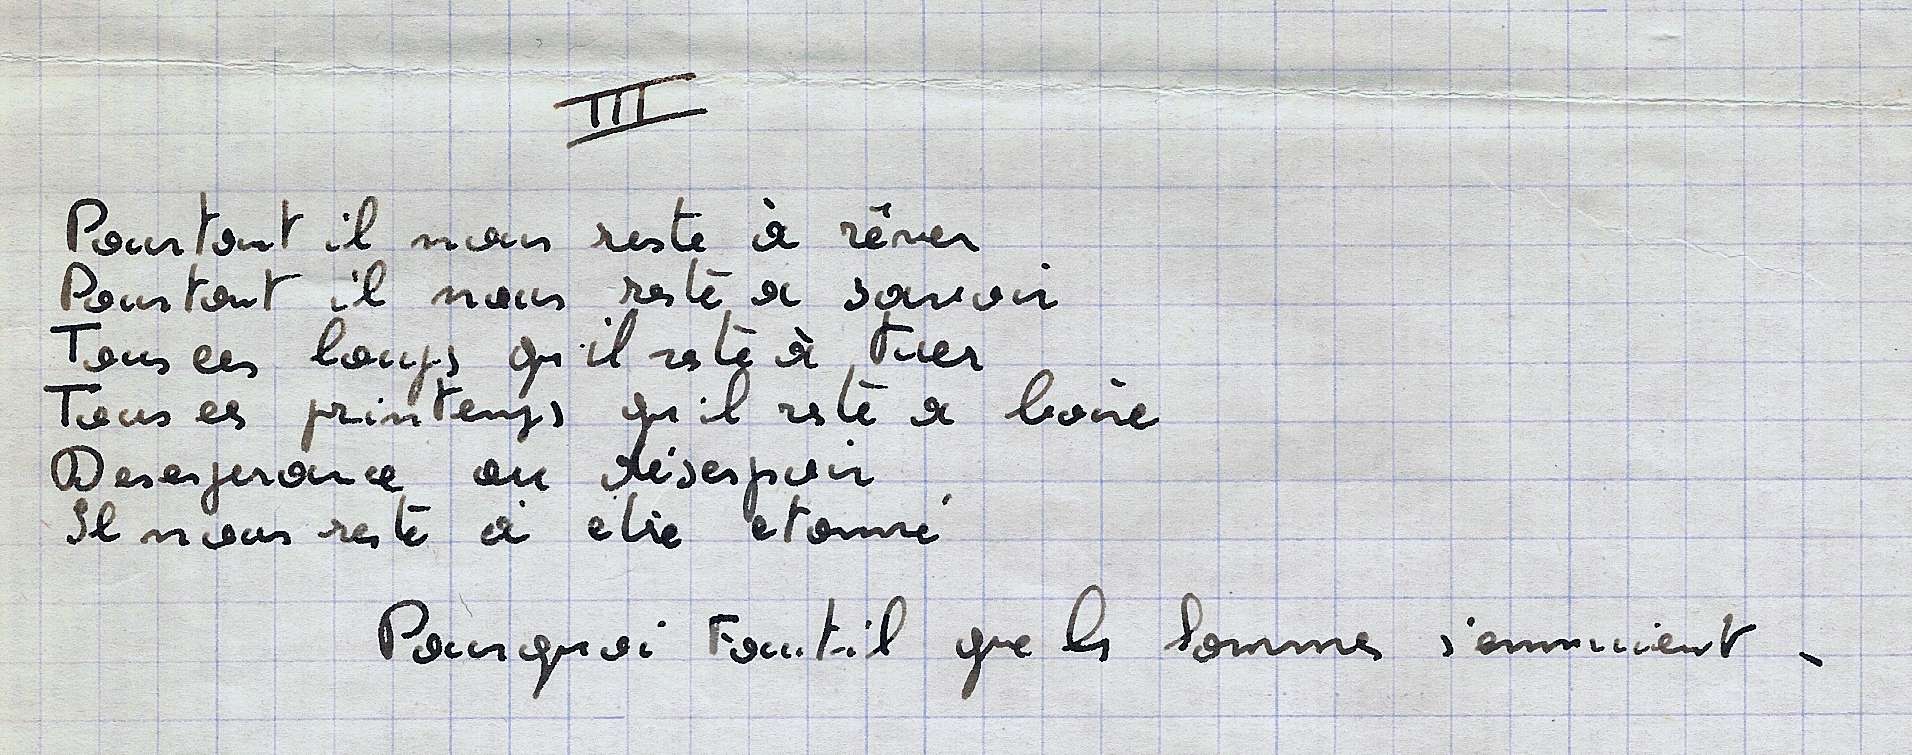 III
Pourtant il nous reste à rêver
Pourtant il nous reste a savoir
Tous ces loups qu'il reste à tuer
Tous ces printemps qu'il reste a boire
Desesperance ou désespoir
Il nous reste à etre etonné
Pourquoi Faut-il que les hommes s'ennuient.